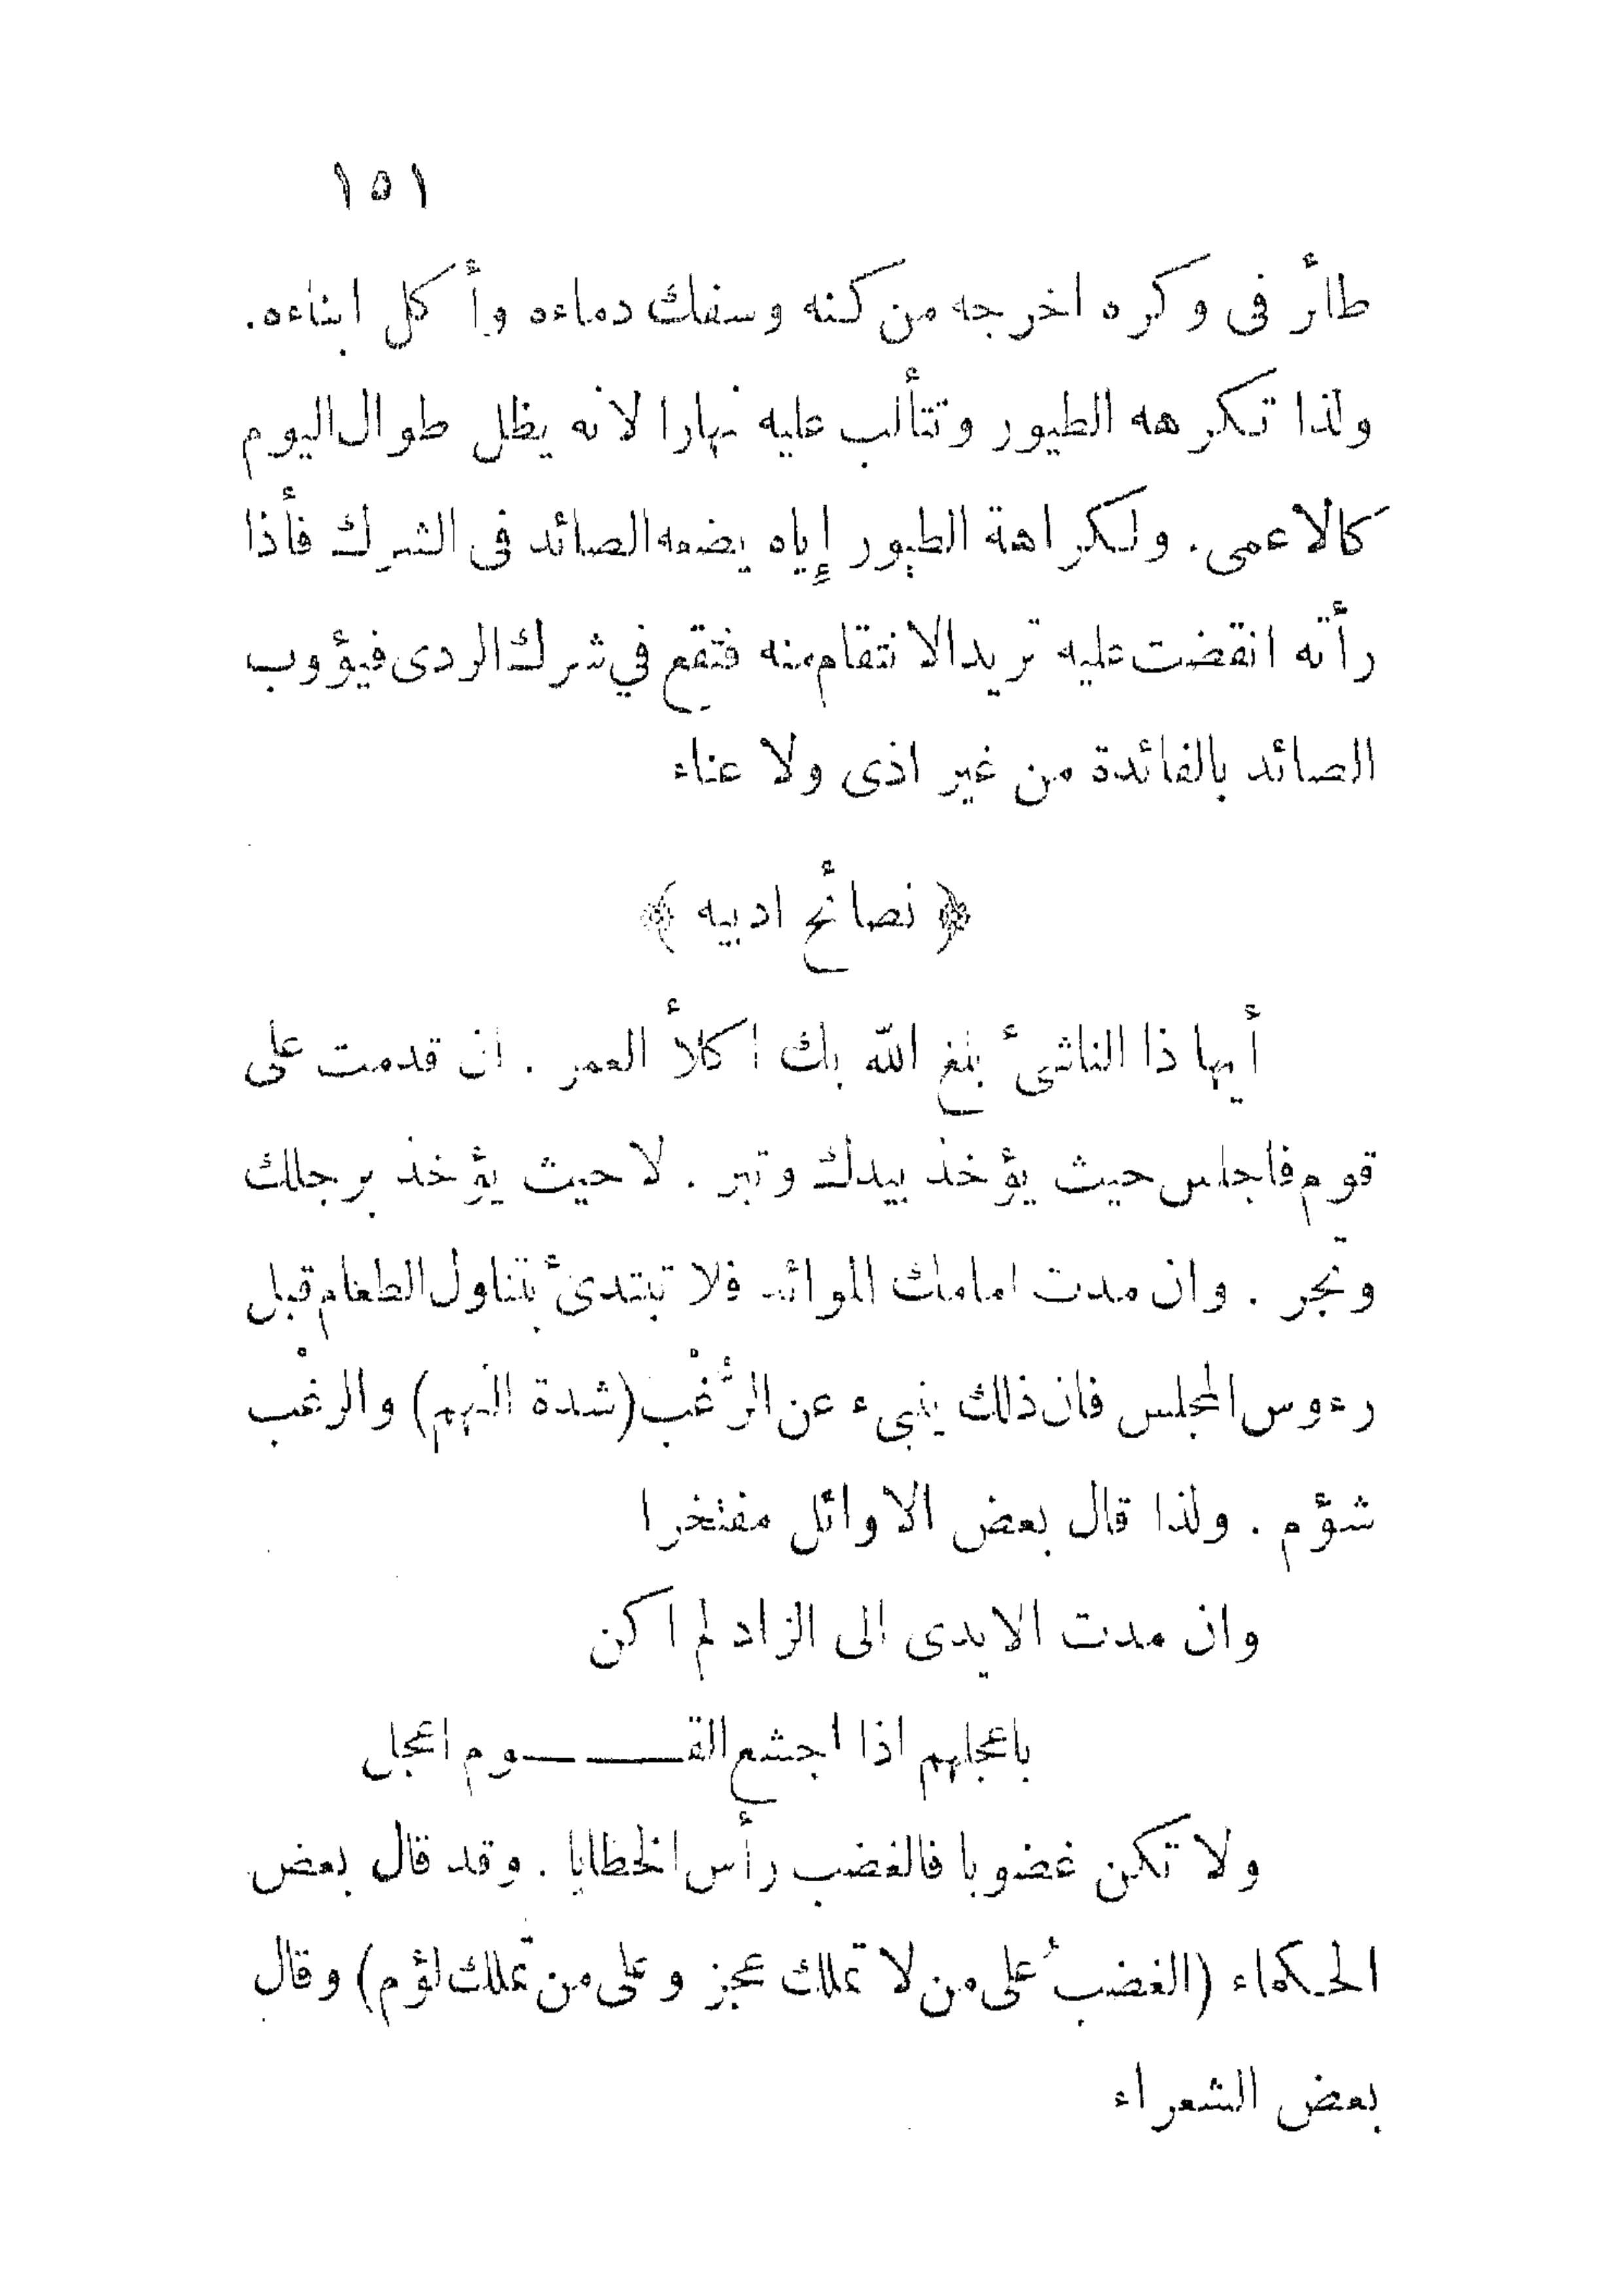 ١٥١
طائر فى وكره اخرجه من كنه وسفك دماءه وأكل ابناءه.
ولذا تكرهه الطيور وتتألب عليه نهارا لانه يظل طوال اليوم
كالاعمى. ولكراهة الطيور إياه يضعه الصائد فى الشرك فأذا
رأته انقضت عليه تريد الانتقام منه فتقع في شرك الردى فيؤوب
الصائد بالفائدة من غير اذى ولا عناء
﴿ نصائح ادبيه ﴾
أيها ذا الناشئ بلغ الله بك اكلأ العمر . ان قدمت على
قوم فاجلس حيث يؤخذ بيدك وتبر . لا حيث يؤخذ برجلك
وتجر . وان مدت امامك الموائد فلا تبتدئ بتناول الطعام قبل
رءوس المجلس فان ذلك ينبىء عن الرُّغْب (شدة النهم) والرغْب
شؤم . ولذا قال بعض الاوائل مفتخرا
وان مدت الايدى الى الزاد لم اكن
باعجلهم اذا اجشع القـــــوم اعجل
ولا تكن غضوبا فالغضب رأس الخطايا . وقد قال بعض
الحكماء (الغضبُ على من لا تملك عجز وعلى من تملك لؤم) وقال
بعض الشعراء